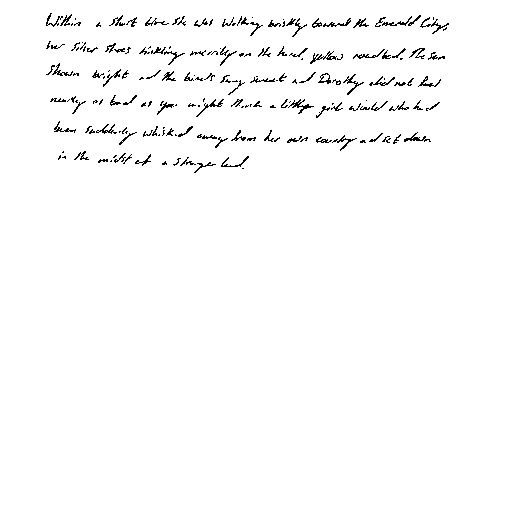 Within a short time she was walking briskly toward the Emerald City,
her silver shoes tinkling merrily on the hard, yellow roadbed. The sun
shown bright and the birds sang sweet and Dorothy did not feel
nearly as bad as you might think a little girl would who had
been suddenly whisked away from her own country and set down
in the midst of a strange land.